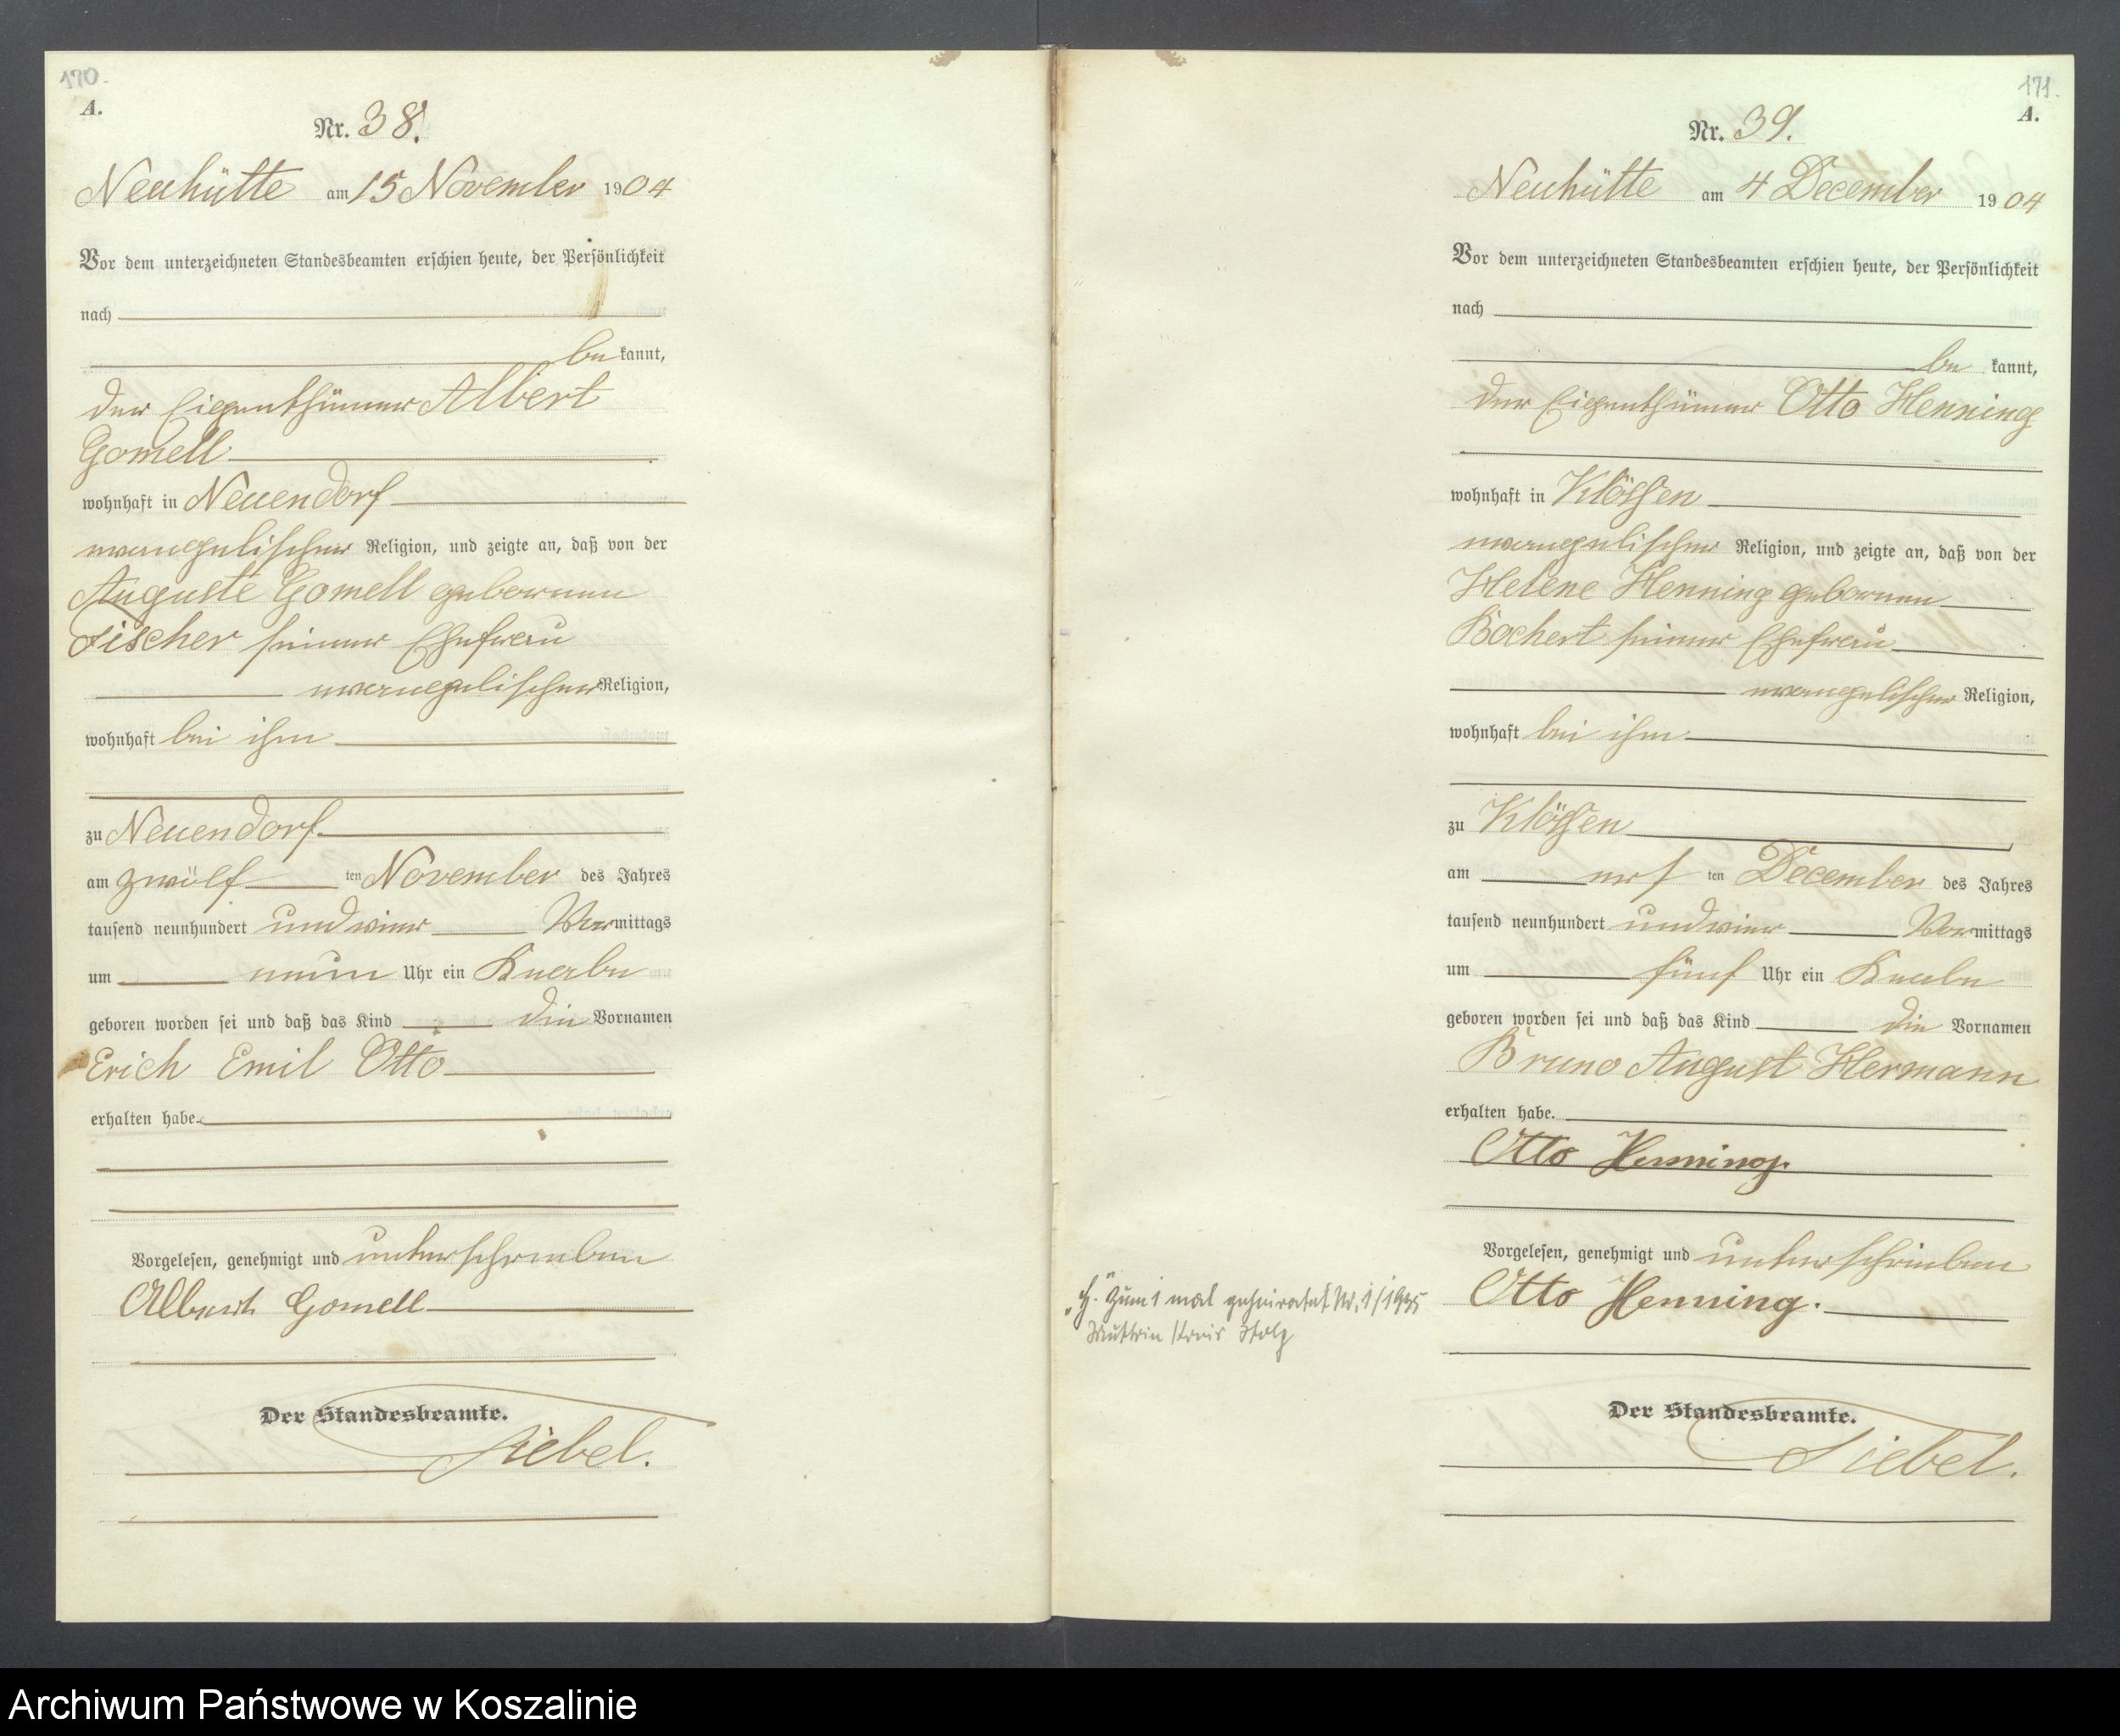 170.
A.
Nr. 38.
Neuhütte am 15 November 1904
Vor dem unterzeichneten Standesbeamten erschien heute, der Persönlichkeit
nach
bekannt,
der Eigenthümer Albert
Gomell
wohnhaft in Neuendorf
evangelischer Religion, und zeigte an, daß von der
Auguste Gomell geborenen
Fischer seiner Ehefrau
evangelischer Religion,
wohnhaft bei ihm
zu Neuendorf
am zwölf ten November des Jahres
tausend neunhundert und vier Vormittags
um neun Uhr ein Knabe
geboren worden sei und daß das Kind die Vornamen
Erich Emil Otto
erhalten habe.
Vorgelesen, genehmigt und unterschrieben
Albert Gomell
Der Standesbeamte.
Siebel.
171.
A.
Nr. 39.
Neuhütte am 4 December 1904
Vor dem unterzeichneten Standesbeamten erschien heute, der Persönlichkeit
nach
bekannt,
der Eigenthümer Otto Henning
wohnhaft in Klössen
evangelischer Religion, und zeigte an, daß von der
Helene Henning geborenen
Bochert seiner Ehefrau
evangelischer Religion,
wohnhaft bei ihm
zu Klössen
am ers ten December des Jahres
tausend neunhundert und vier Vormittags
um fünf Uhr ein Knabe
geboren worden sei und daß das Kind die Vornamen
Bruno August Hermann
erhalten habe.
Otto Henning.
Vorgelesen, genehmigt und unterschrieben
Otto Henning.
„H." Zum 1 mal geheiratet Nr. 1/1935
Muttrin Kreis Stolp
Der Standesbeamte.
Siebel.
Archiwum Państwowe w Koszalinie